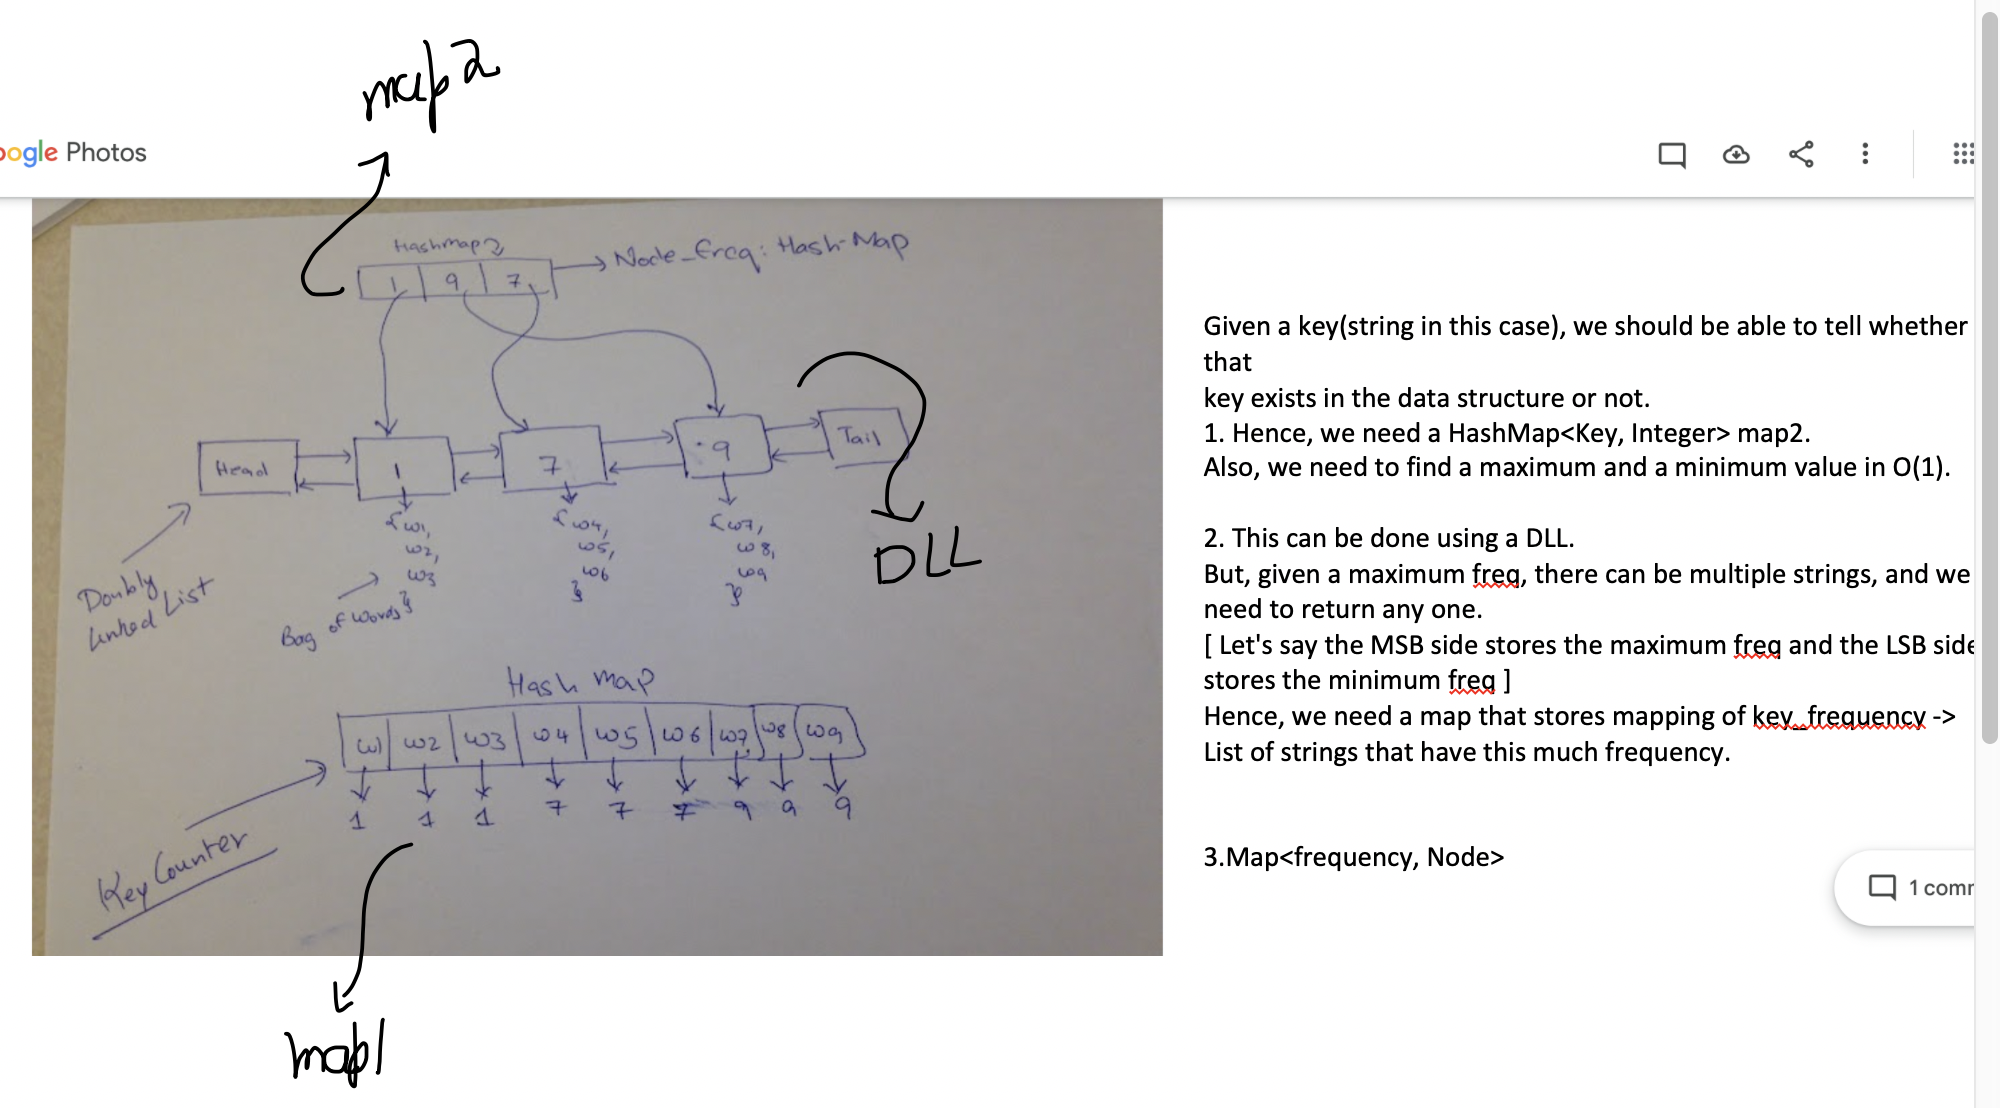 map2
oogle Photos
Hashmap2
1 9 7
Node_freq: Hash-Map
Head
1
7
9
Tail
{w1,
w2,
w3
}
{w4,
w5,
w6
}
{w7,
w8,
w9
}
DLL
Doubly
Linked List
Bag of words
Hash map
w1 w2 w3 w4 w5 w6 w7 w8 w9
1 1 1 7 7 7 9 9 9
Key Counter
map1
Given a key(string in this case), we should be able to tell whether
that
key exists in the data structure or not.
1. Hence, we need a HashMap<Key, Integer> map2.
Also, we need to find a maximum and a minimum value in O(1).
2. This can be done using a DLL.
But, given a maximum freq, there can be multiple strings, and we
need to return any one.
[ Let's say the MSB side stores the maximum freq and the LSB side
stores the minimum freq ]
Hence, we need a map that stores mapping of key_frequency ->
List of strings that have this much frequency.
3.Map<frequency, Node>
1 comm